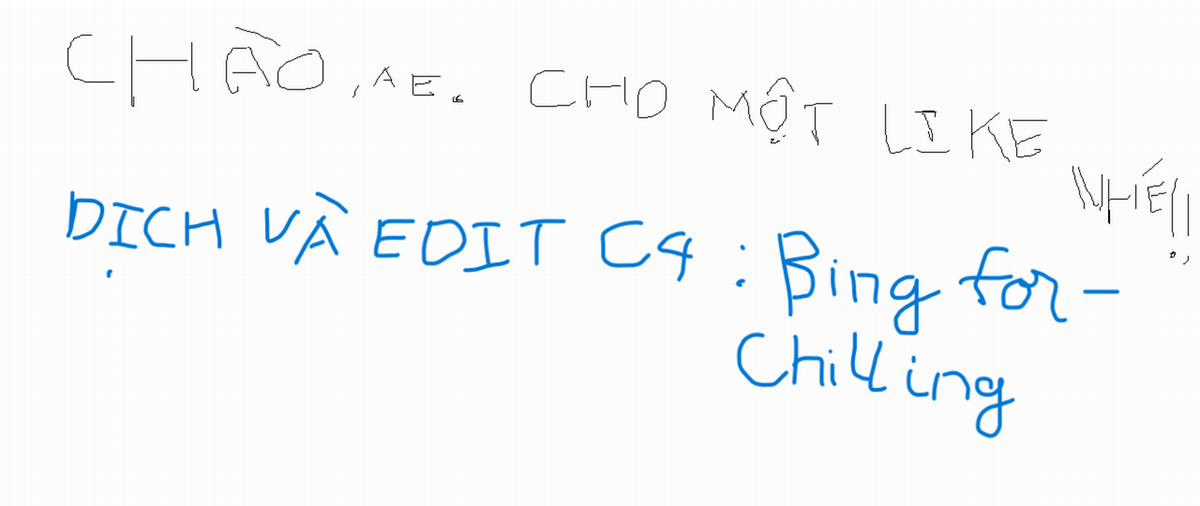 CHÀO, AE. CHO MỘT LIKE NHÉ!!
DỊCH VÀ EDIT C4: Bing for-
Chilling